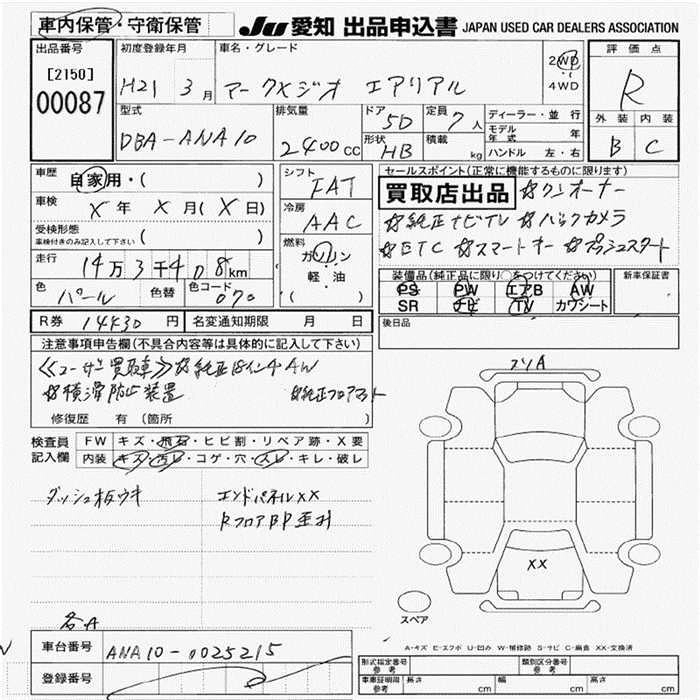 車内保管・守衛保管
JU 愛知 出品申込書 JAPAN USED CAR DEALERS ASSOCIATION
出品番号
[2150]
00087
初度登録年月
H21 3月
車名・グレード
マークXジオ エアリアル
2WD
4WD
評価点
R
外装 内装
B C
型式
DBA-ANA10
排気量
2400CC
ドア 5D
形状 HB
定員 7人
積載 kg
ディーラー・並行
モデル年式 年
ハンドル 左・右
車歴 自家用・( )
車検 X年 X月(X日)
受検形態
車検付きのみ記入して下さい ( )
走行 14万3千408km
色 パール 色替 色コード 070
シフト FAT
冷房 AAC
燃料 ガソリン
軽・油
( )
セールスポイント(正常に機能するものに限ります)
買取店出品 ☆ワンオーナー
☆純正ナビTV ☆バックカメラ
☆ETC ☆スマートキー ☆プッシュスタート
装備品(純正品に限り○をつけてください)
PS PW エアB AW
SR ナビ TV カワシート
新車保証書
R券 14430円 名変通知期限 月 日
後日品
注意事項申告欄(不具合内容等は具体的に記入して下さい)
《ユーザー買取車》 ☆純正18インチAW
☆横滑防止装置 ☆純正フロアマット
修復歴 有(箇所 )
検査員記入欄
FW キズ・飛石・ヒビ割・リペア跡・X要
内装 キズ・汚レ・コゲ・穴・スレ・キレ・破レ
ダッシュ板ウキ エンドパネルXX
RフロアBP歪み
各A
フソA
XX
スペア
A-キズ E-エクボ U-凹み W-補修跡 S-サビ C-腐食 XX-交換済
車台番号 ANA10-0025215
登録番号
形式指定番号 参考 類別区分番号 参考
車庫証明用 参考 長さ cm 幅 cm 高さ cm